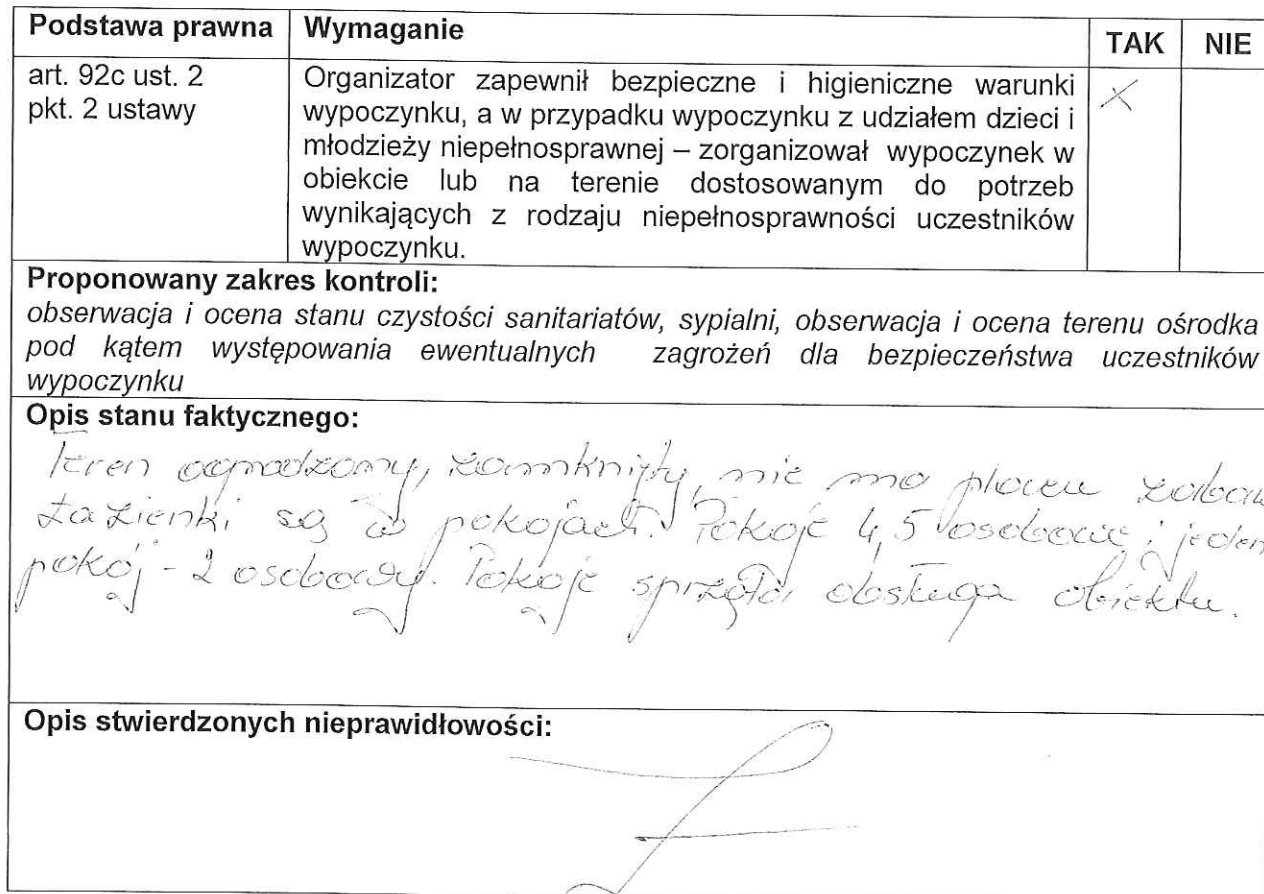 Podstawa prawna Wymaganie TAK NIE
art. 92c ust. 2
pkt. 2 ustawy
Organizator zapewnił bezpieczne i higieniczne warunki
wypoczynku, a w przypadku wypoczynku z udziałem dzieci i
młodzieży niepełnosprawnej – zorganizował wypoczynek w
obiekcie lub na terenie dostosowanym do potrzeb
wynikających z rodzaju niepełnosprawności uczestników
wypoczynku.
X
Proponowany zakres kontroli:
obserwacja i ocena stanu czystości sanitariatów, sypialni, obserwacja i ocena terenu ośrodka
pod kątem występowania ewentualnych zagrożeń dla bezpieczeństwa uczestników
wypoczynku
Opis stanu faktycznego:
Teren ogrodzony, zamknięty, nie ma placu zabaw
Łazienki są w pokojach. Pokoje 4,5 osobowe i jeden
pokój - 2 osobowy. Pokoje sprząta obsługa obiektu.
Opis stwierdzonych nieprawidłowości: